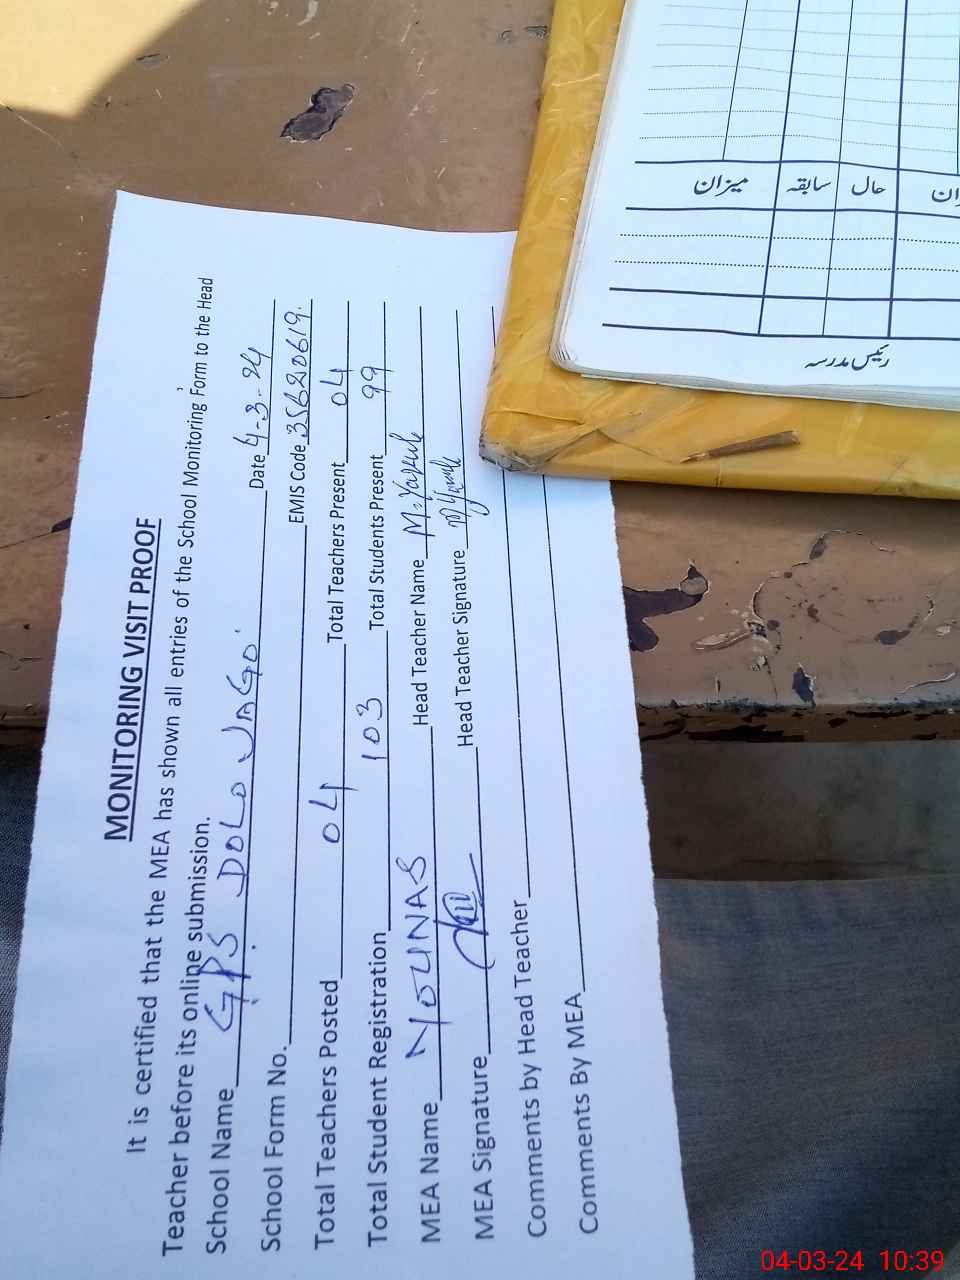 MONITORING VISIT PROOF
It is certified that the MEA has shown all entries of the School Monitoring Form to the Head
Teacher before its online submission.
School Name GPS DOLO JAGO. Date 4-3-24
School Form No. EMIS Code 35620619.
Total Teachers Posted 04 Total Teachers Present 04
Total Student Registration 103 Total Students Present 99
MEA Name YOUNAS Head Teacher Name M.Yaqub
MEA Signature Head Teacher Signature
Comments by Head Teacher
Comments By MEA
حال سابقہ میزان
رئیس مدرسہ
04-03-24 10:39